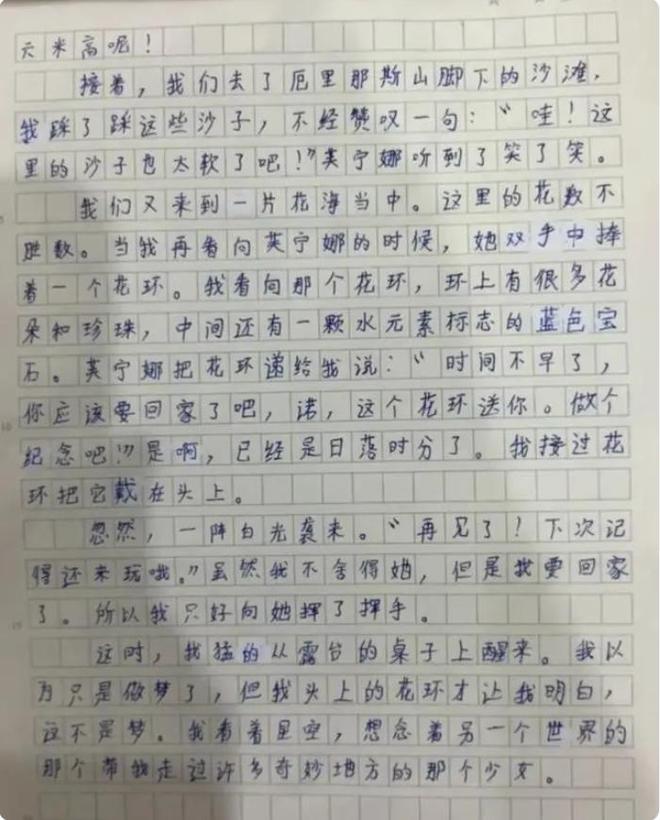 六米高呢！
接着，我们去了厄里那斯山脚下的沙滩，
我踩了踩这些沙子，不经赞叹一句：“哇！这
里的沙子也太软了吧！”芙宁娜听到了笑了笑。
我们又来到一片花海当中。这里的花数不
胜数。当我再看向芙宁娜的时候，她双手中捧
着一个花环。我看向那个花环，环上有很多花
朵和珍珠，中间还有一颗水元素标志的蓝色宝
石。芙宁娜把花环递给我说：“时间不早了，
你应该要回家了吧，诺，这个花环送你。做个
纪念吧！”是啊，已经是日落时分了。我接过花
环把它戴在头上。
忽然，一阵白光袭来。“再见了！下次记
得还来玩哦。”虽然我不舍得她，但是我要回家
了。所以我只好向她挥了挥手。
这时，我猛的从露台的桌子上醒来。我以
为只是做梦了，但我头上的花环才让我明白，
这不是梦。我看着星空，想念着另一个世界的
那个带我走过许多奇妙地方的那个少女。